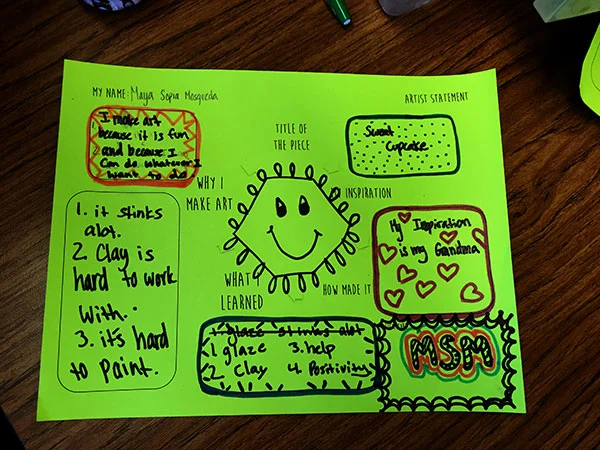 MY NAME: Maya Sopia Mosqueda
ARTIST STATEMENT
I make art
because it is fun
and because I
Can do whatever I
want to do
WHY I
MAKE ART
TITLE OF
THE PIECE
Sweet
Cupcake
INSPIRATION
My Inspiration
is my Grandma
1. it stinks
alot.
2 Clay is
hard to work
with.
3. it's hard
to paint.
WHAT I
LEARNED
HOW MADE IT
1 glaze stinks alot
1 glaze 3. help
2 Clay 4. Positivity
MSM